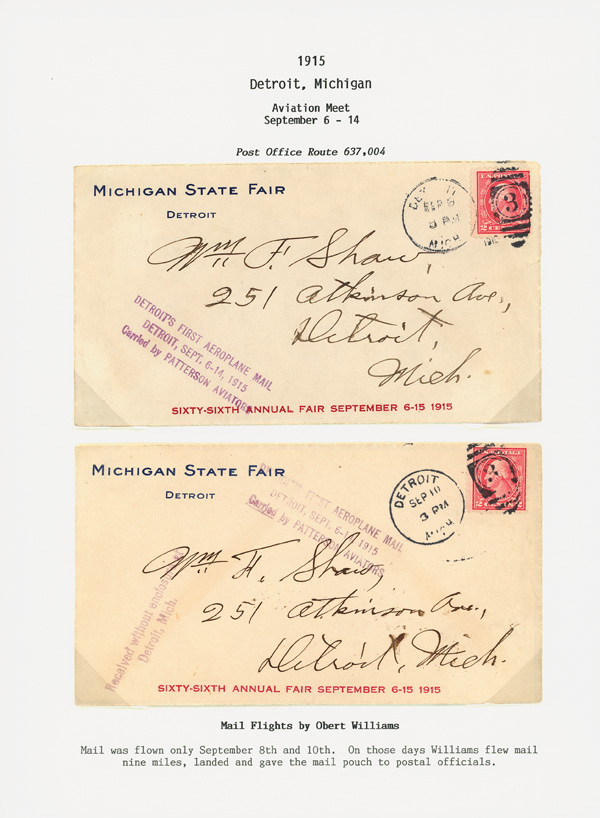 1915
Detroit, Michigan
Aviation Meet
September 6 - 14
Post Office Route 637,004
MICHIGAN STATE FAIR
DETROIT
SEP 8
3 PM
MICH
3
U.S. POSTAGE
Wm. F. Shaw,
251 Atkinson Ave.,
Detroit,
Mich.
DETROIT'S FIRST AEROPLANE MAIL
DETROIT, SEPT. 6-14, 1915
Carried by PATTERSON AVIATORS
SIXTY-SIXTH ANNUAL FAIR SEPTEMBER 6-15 1915
MICHIGAN STATE FAIR
DETROIT
FIRST AEROPLANE MAIL
DETROIT, SEPT. 6-14, 1915
Carried by PATTERSON AVIATORS
DETROIT
SEP 10
3 PM
MICH
Wm. F. Shaw,
251 Atkinson Ave.,
Detroit, Mich.
Received without
Detroit, Mich.
SIXTY-SIXTH ANNUAL FAIR SEPTEMBER 6-15 1915
Mail Flights by Obert Williams
Mail was flown only September 8th and 10th. On those days Williams flew mail
nine miles, landed and gave the mail pouch to postal officials.